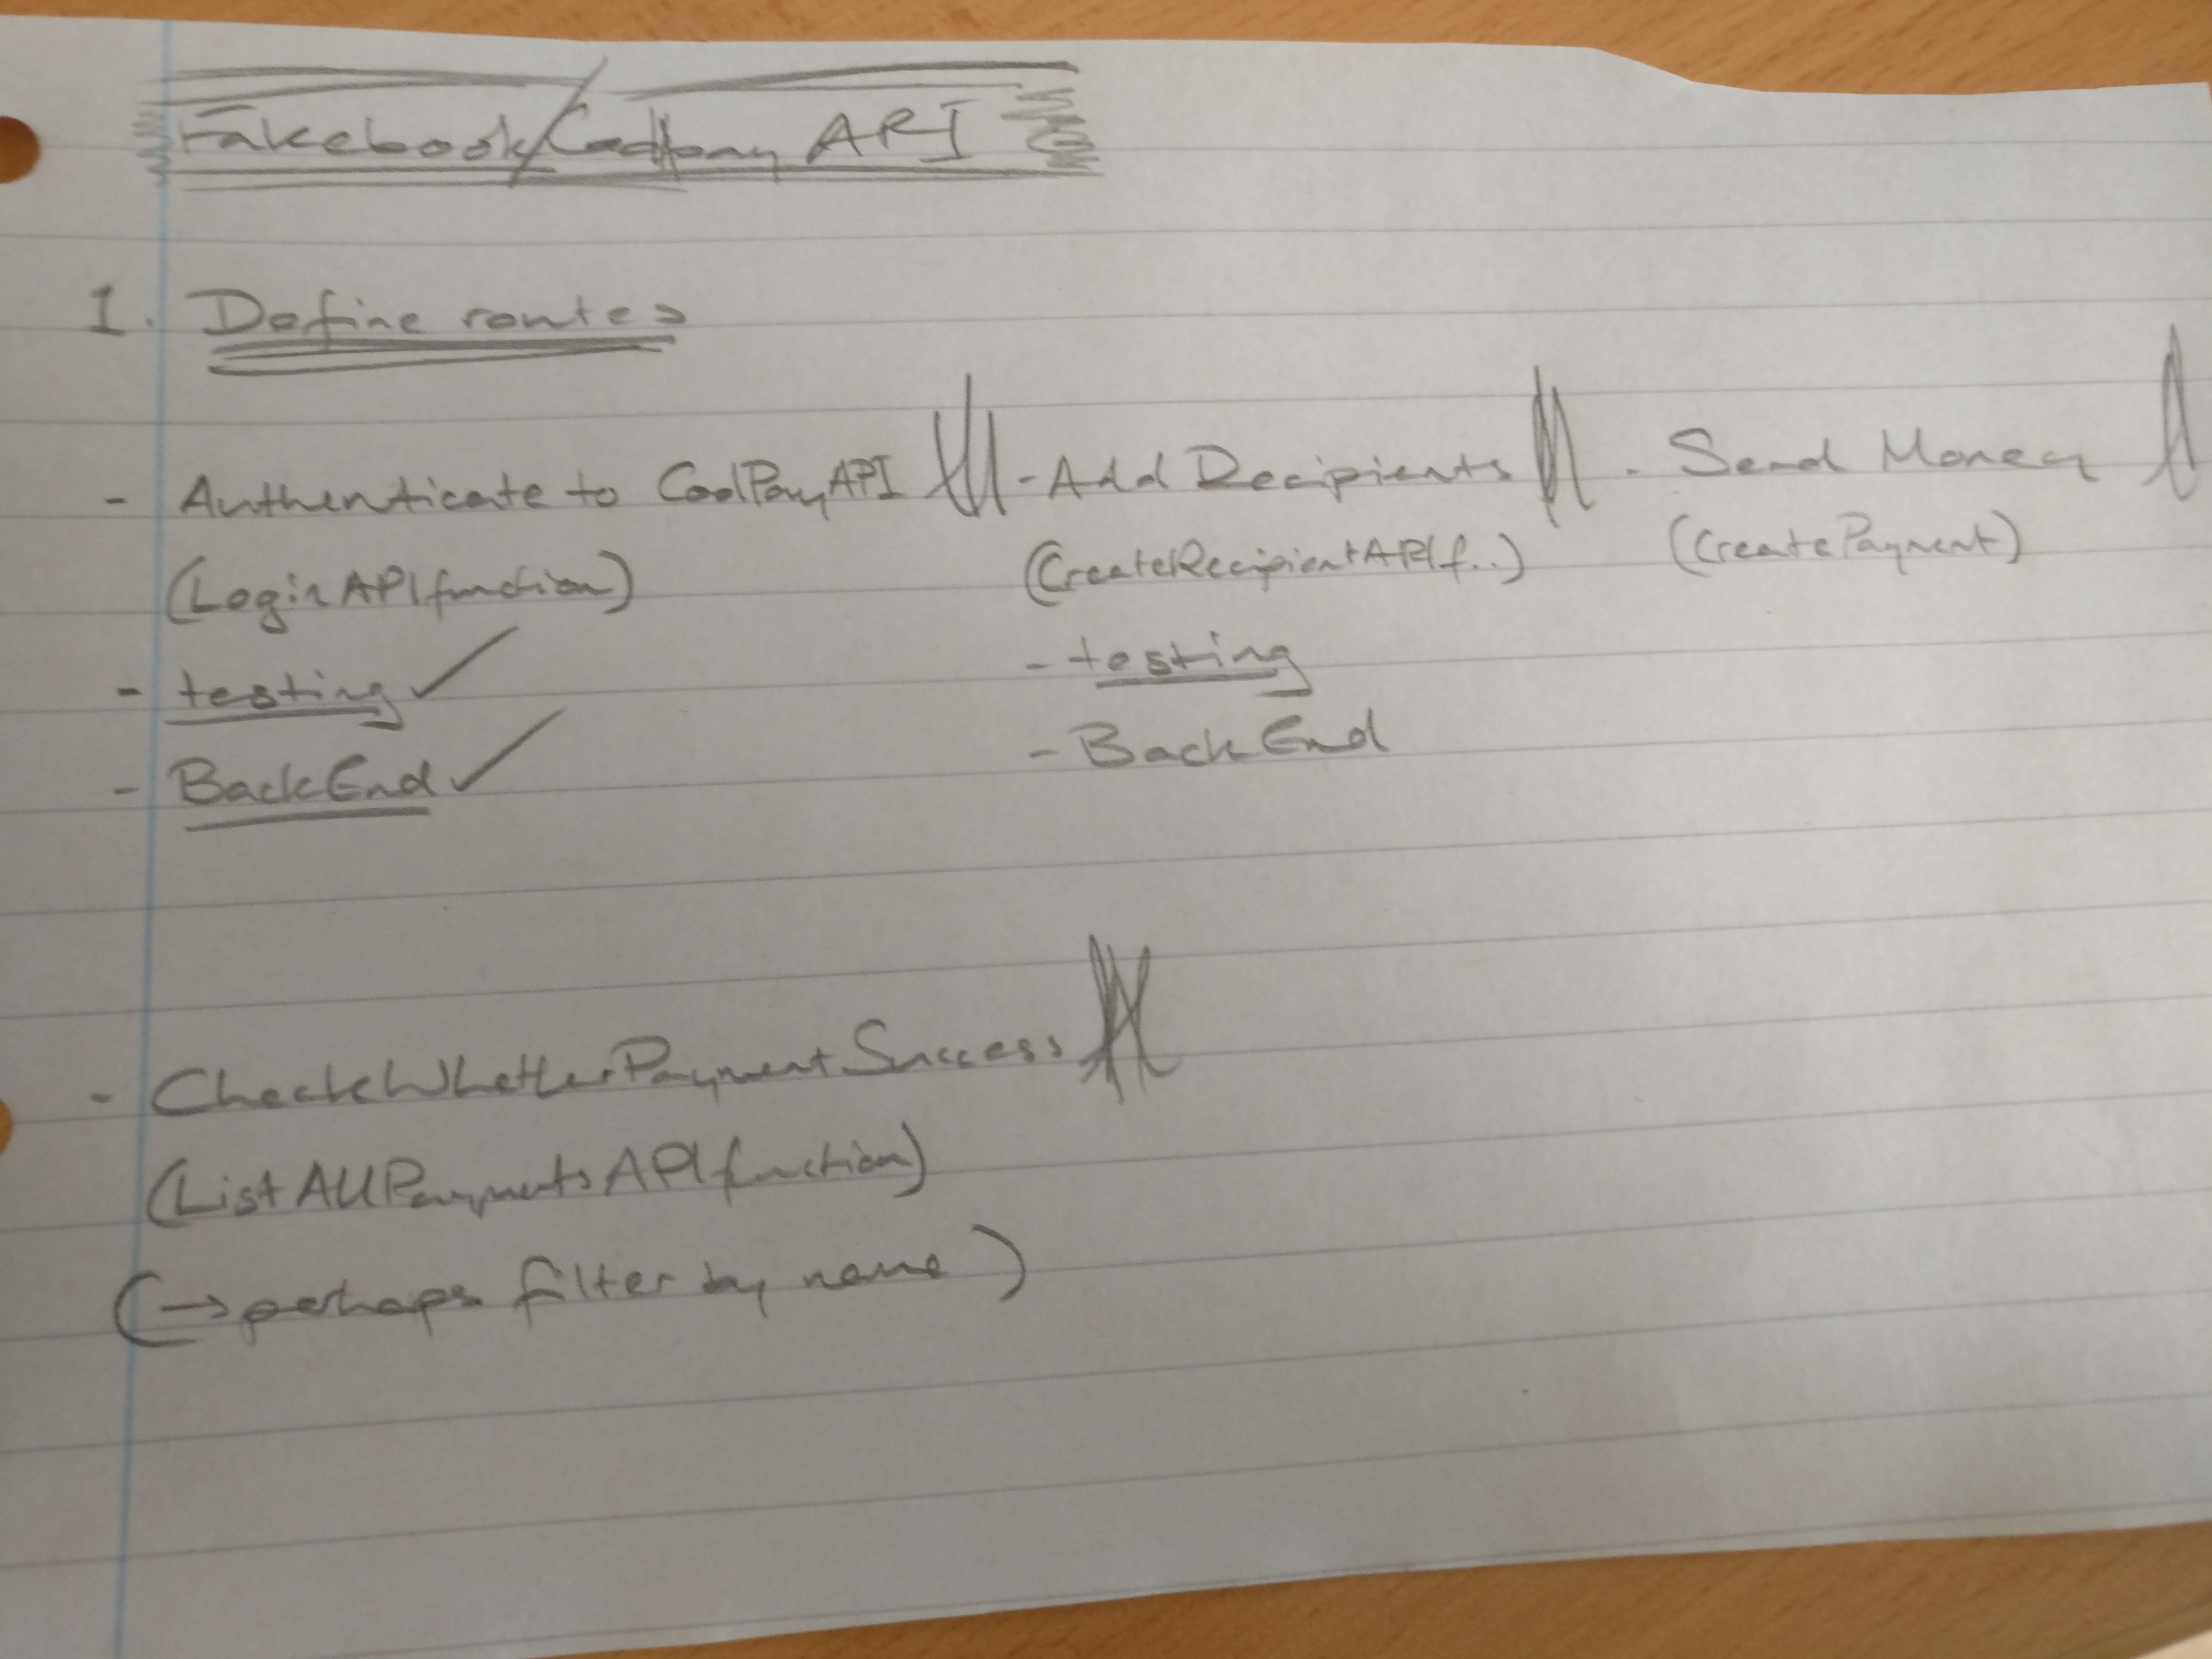 Fakebook/Coolpay API
1. Define routes
- Authenticate to CoolPayAPI
(LoginAPIfunction)
- testing ✓
- BackEnd ✓
- Add Recipients
(CreateRecipientAPIf..)
- testing
- BackEnd
- Send Money
(CreatePayment)
- CheckWhetherPaymentSuccess
(ListAllPaymentsAPIfunction)
(→perhaps filter by name)